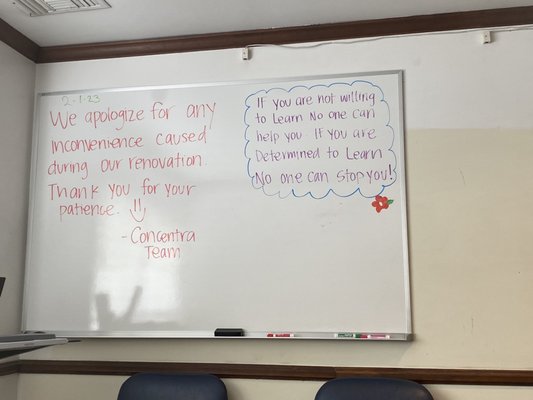 2-1-23
We apologize for any
Inconvenience caused
during our renovation.
Thank you for your
patience.
- Concentra
Team
If you are not willing
to Learn No one can
help you. If you are
Determined to Learn
No one can stop you!